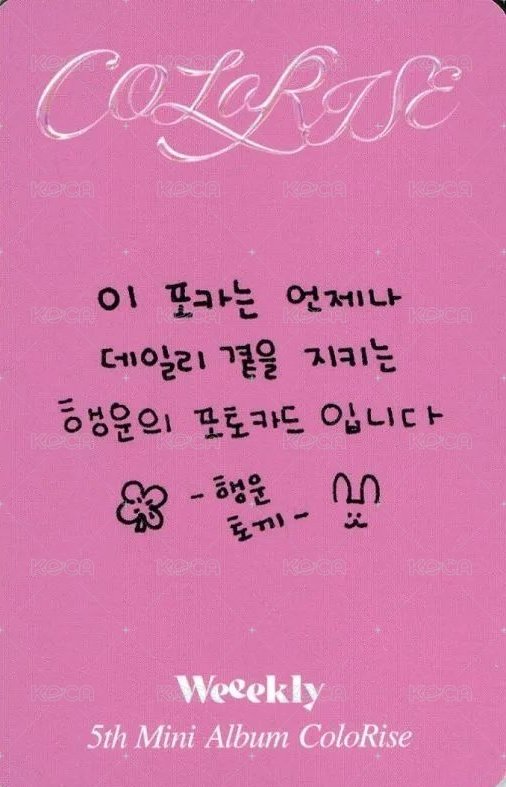 COLORISE
이 포카는 언제나
데일리 곁을 지키는
행운의 포토카드 입니다
- 행운
토끼 -
Weeekly
5th Mini Album ColoRise